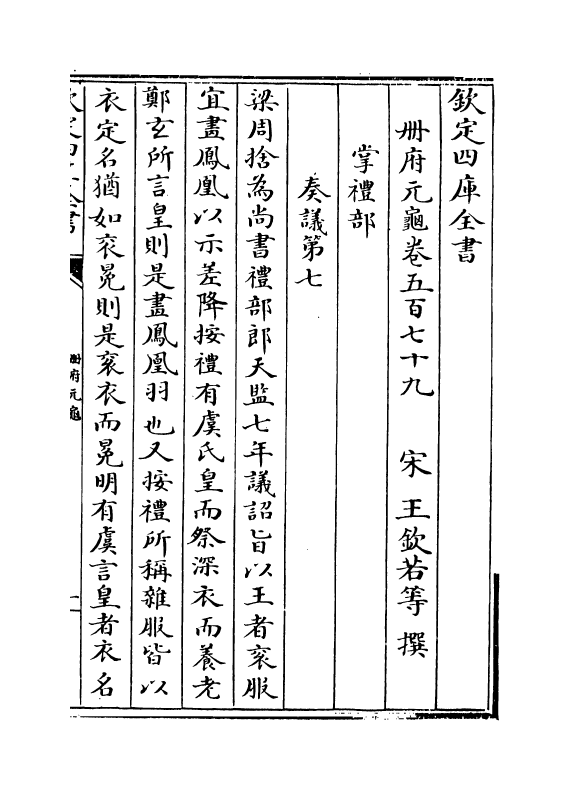 欽定四庫全書
册府元龜卷五百七十九　宋　王欽若等　撰
掌禮部
奏議第七
梁周捨為尚書禮部郎天監七年議詔旨以王者衮服
宜畫鳳凰以示差降按禮有虞氏皇而祭深衣而養老
鄭玄所言皇則是畫鳳凰羽也又按禮所稱雜服皆以
衣定名猶如衮冕則是衮衣而冕明有虞言皇者衣名
册府元龜
一